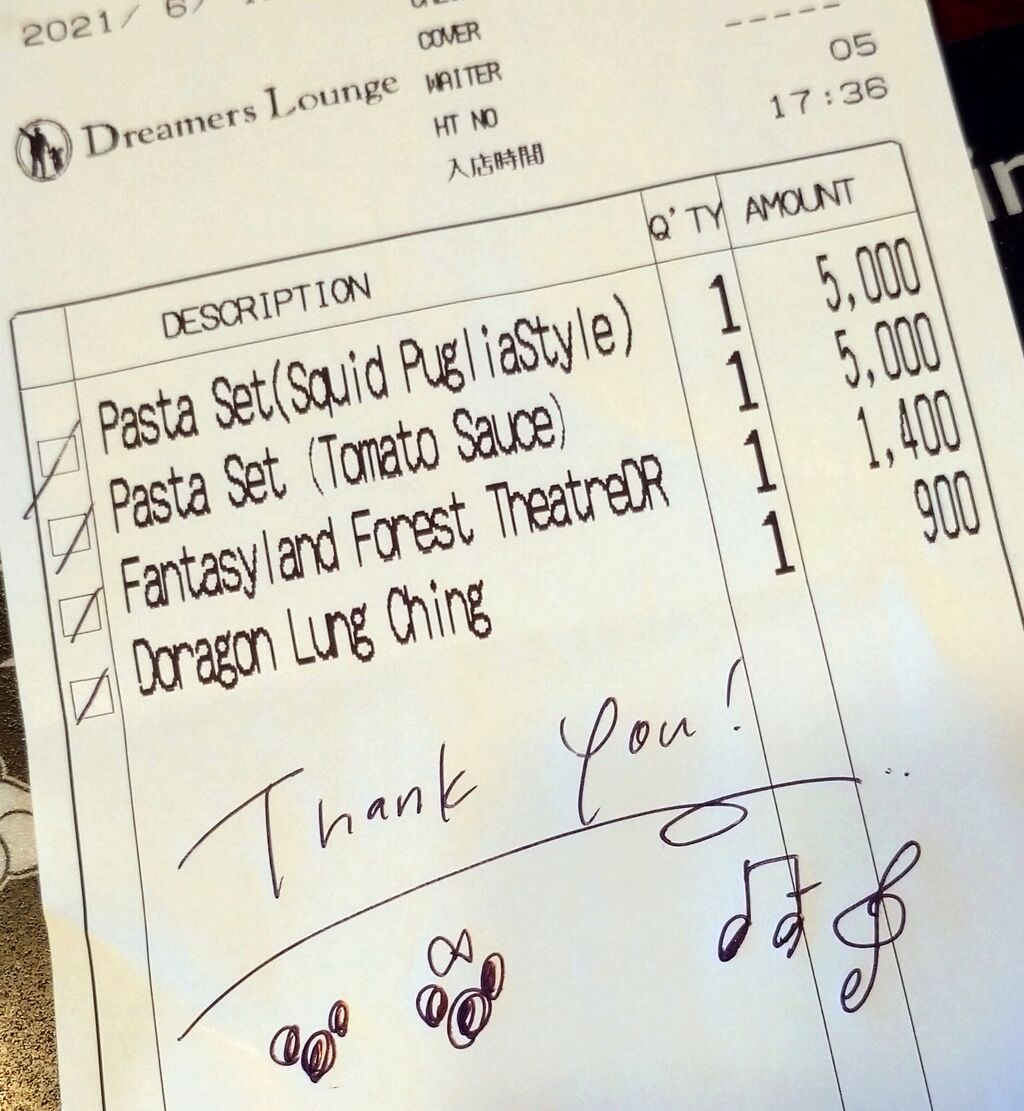 2021/ 6/
COVER
-----
Dreamers Lounge
WAITER
05
HT NO
17:36
入店時間
DESCRIPTION Q'TY AMOUNT
Pasta Set(Squid PugliaStyle) 1 5,000
Pasta Set (Tomato Sauce) 1 5,000
Fantasyland Forest TheatreDR 1 1,400
Doragon Lung Ching 1 900
Thank you!